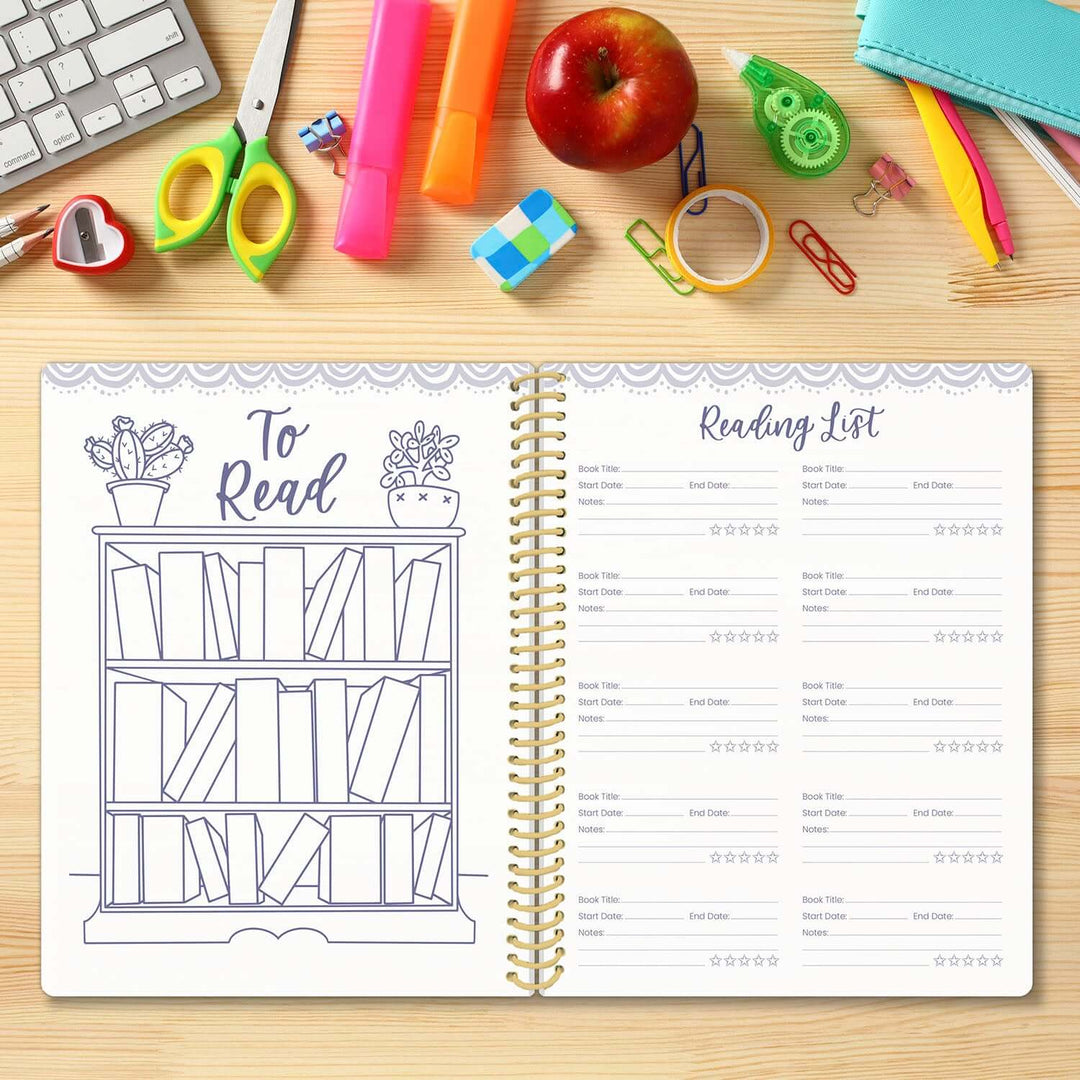 shift
alt
option
command
To
Read
Reading List
Book Title:
Start Date: End Date:
Notes:
Book Title:
Start Date: End Date:
Notes:
Book Title:
Start Date: End Date:
Notes:
Book Title:
Start Date: End Date:
Notes:
Book Title:
Start Date: End Date:
Notes:
Book Title:
Start Date: End Date:
Notes:
Book Title:
Start Date: End Date:
Notes:
Book Title:
Start Date: End Date:
Notes:
Book Title:
Start Date: End Date:
Notes:
Book Title:
Start Date: End Date:
Notes: